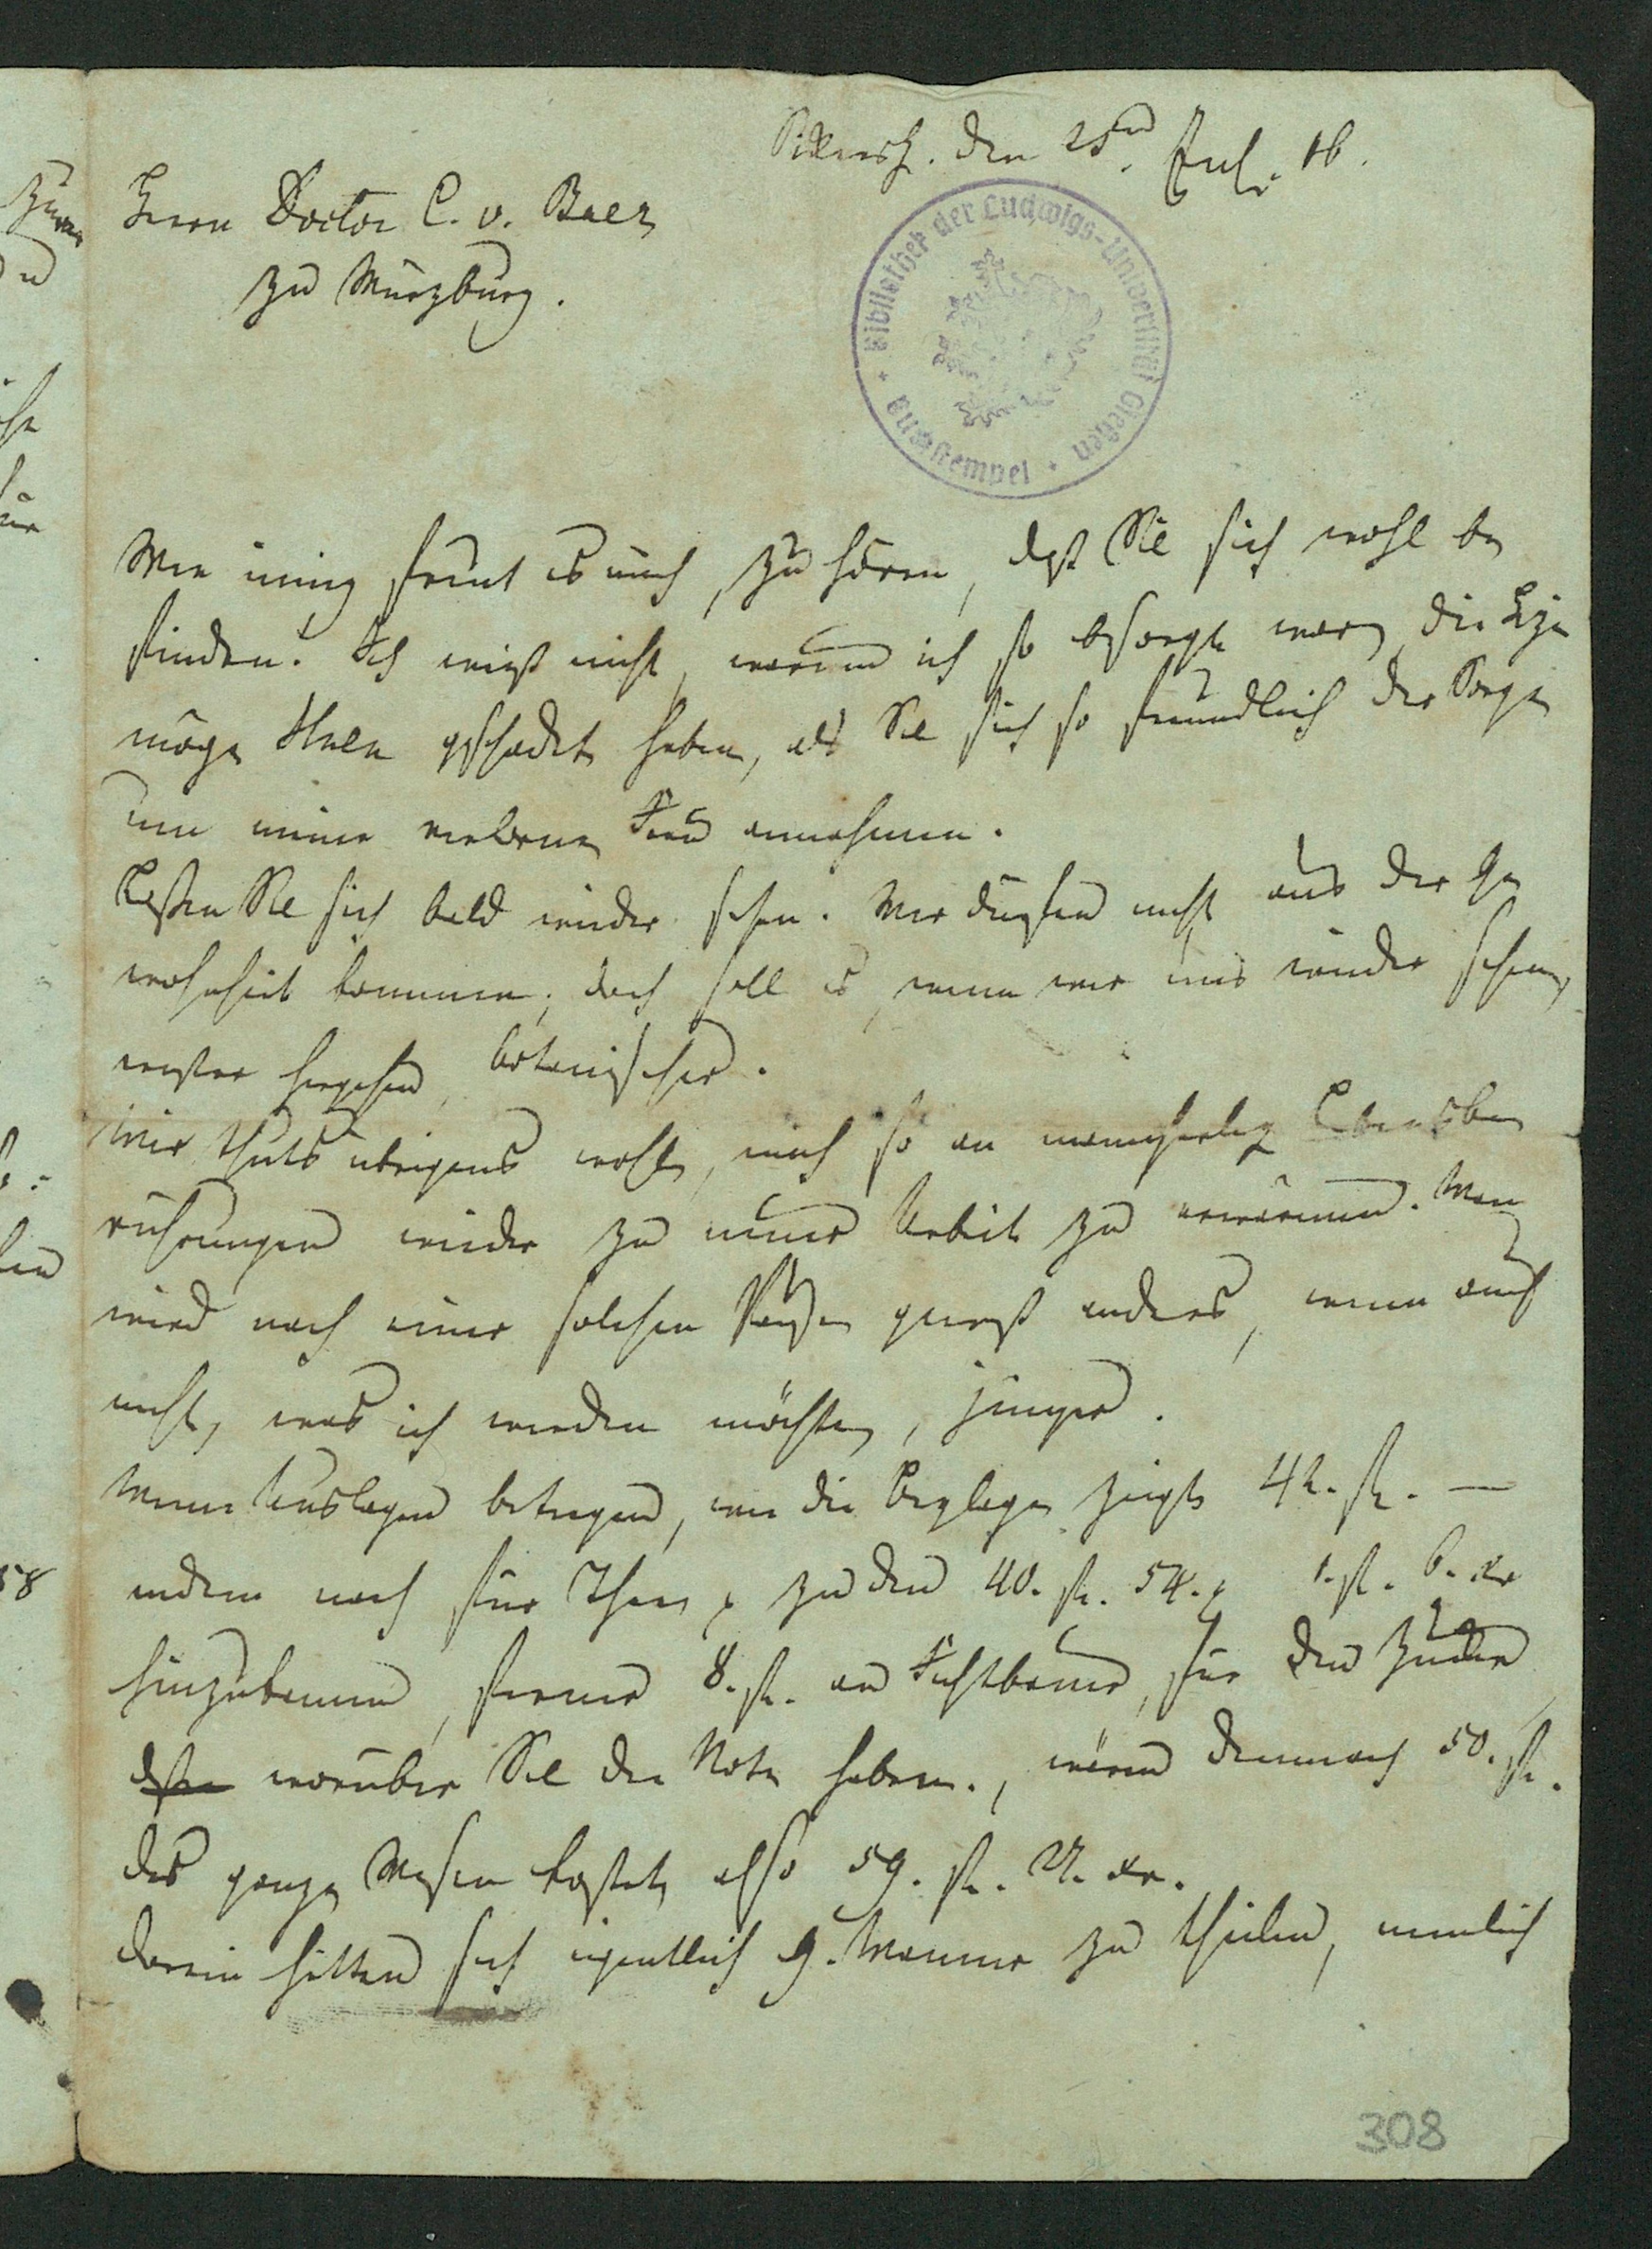 Sickersh. den 25ten Jul. 16.
Herrn Doctor C. v. Baer
zu Würzburg.
Bibliothek der Ludwigs-Universität Gießen
Buchstempel
Wie innig freut es mich, zu hören, daß Sie sich wohl be
finden. Ich weiß nicht, warum ich so besorgt war, die
möge Ihnen geschadet haben, als Sie sich so freundlich der Sorge
um meine verlorne Frau annahmen.
Lassen Sie sich bald wieder sehen. Wir dürfen nicht aus der Ge
wohnheit kommen; doch soll es, wenn wir uns wieder sehen,
hergehen, botanischer.
Mir thuts übrigens wohl, mich so an mancherley Lebensbe
rührungen wieder zu meiner Arbeit zu erwärmen. Man
wird nach einer solchen Reise gewiß anders, wenn auch
nicht, was ich werden möchte, jünger.
Meine Auslagen betragen, wie die Beylage zeigt 42. fl. —
indem noch für Thee zu den 40. fl. 54. x 1. fl. 6. xr
hinzukommen, ferner 8. fl. an Fichtbauer, für den
worüber Sie die Note haben, wären demnach 50. fl.
das ganze Wesen kostet also 59. fl. xr.
darein hätten sich eigentlich 9. Männer zu theilen, nemlich
308
58